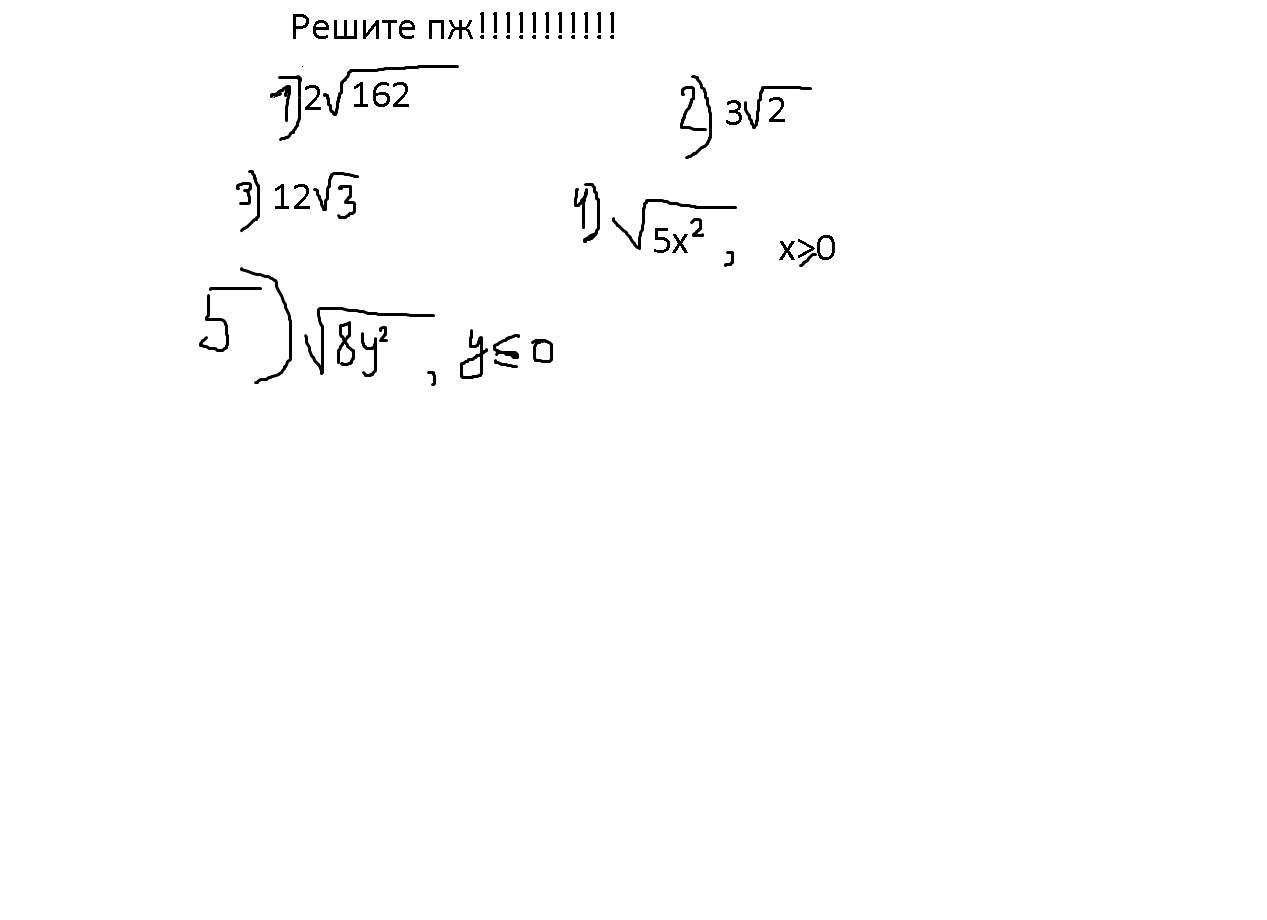 Решите пж!!!!!!!!!!!
1) 2√162 2) 3√2
3) 12√3 4) √5x², x⩾0
5) √8y², y≤0